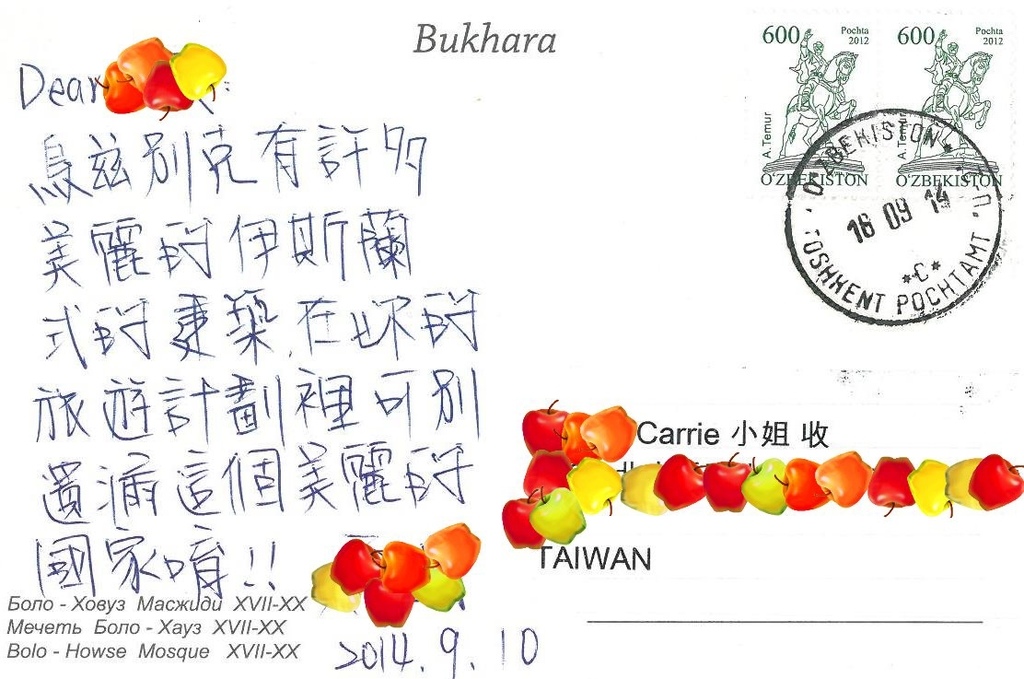 Bukhara
600 Pochta 2012
A.Temur
O'ZBEKISTON
600 Pochta 2012
A.Temur
O'ZBEKISTON
O'ZBEKISTON
16 09 14
*C*
TOSHKENT POCHTAMT
Dear
烏茲別克有許多
美麗的伊斯蘭
式的建築,在妳的
旅遊計劃裡可別
遺漏這個美麗的
國家唷!!
2014.9.10
Carrie 小姐 收
TAIWAN
Боло - Ховуз Масжиди XVII-XX
Мечеть Боло - Хауз XVII-XX
Bolo - Howse Mosque XVII-XX